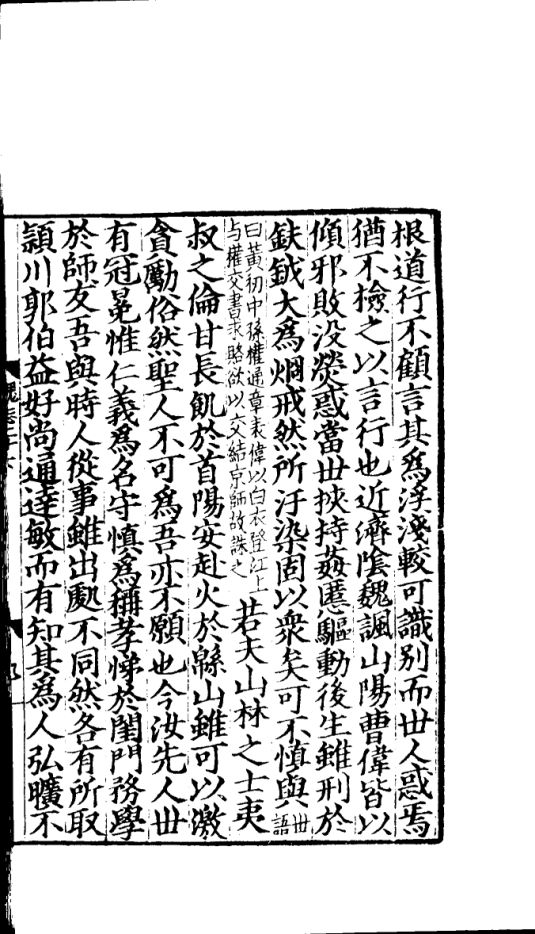 根道行不顧言其爲浮淺較可識别而世人惑焉
猶不檢之以言行也近濟隂魏諷山陽曹偉皆以
傾邪敗没熒惑當世挾持姦慝驅動後生雖刑於
鈇鉞大爲烱戒然所汙染固以衆矣可不慎與世語
曰黄初中孫權通章表偉以白衣登江上
与權交書求賂欲以交結京師故誅之
若夫山林之士夷
叔之倫甘長飢於首陽安赴火於緜山雖可以激
貪勵俗然聖人不可爲吾亦不願也今汝先人世
有冠冕惟仁義爲名守慎爲稱孝悌於閨門務學
於師友吾與時人從事雖出處不同然各有所取
頴川郭伯益好尚通達敏而有知其爲人弘曠不